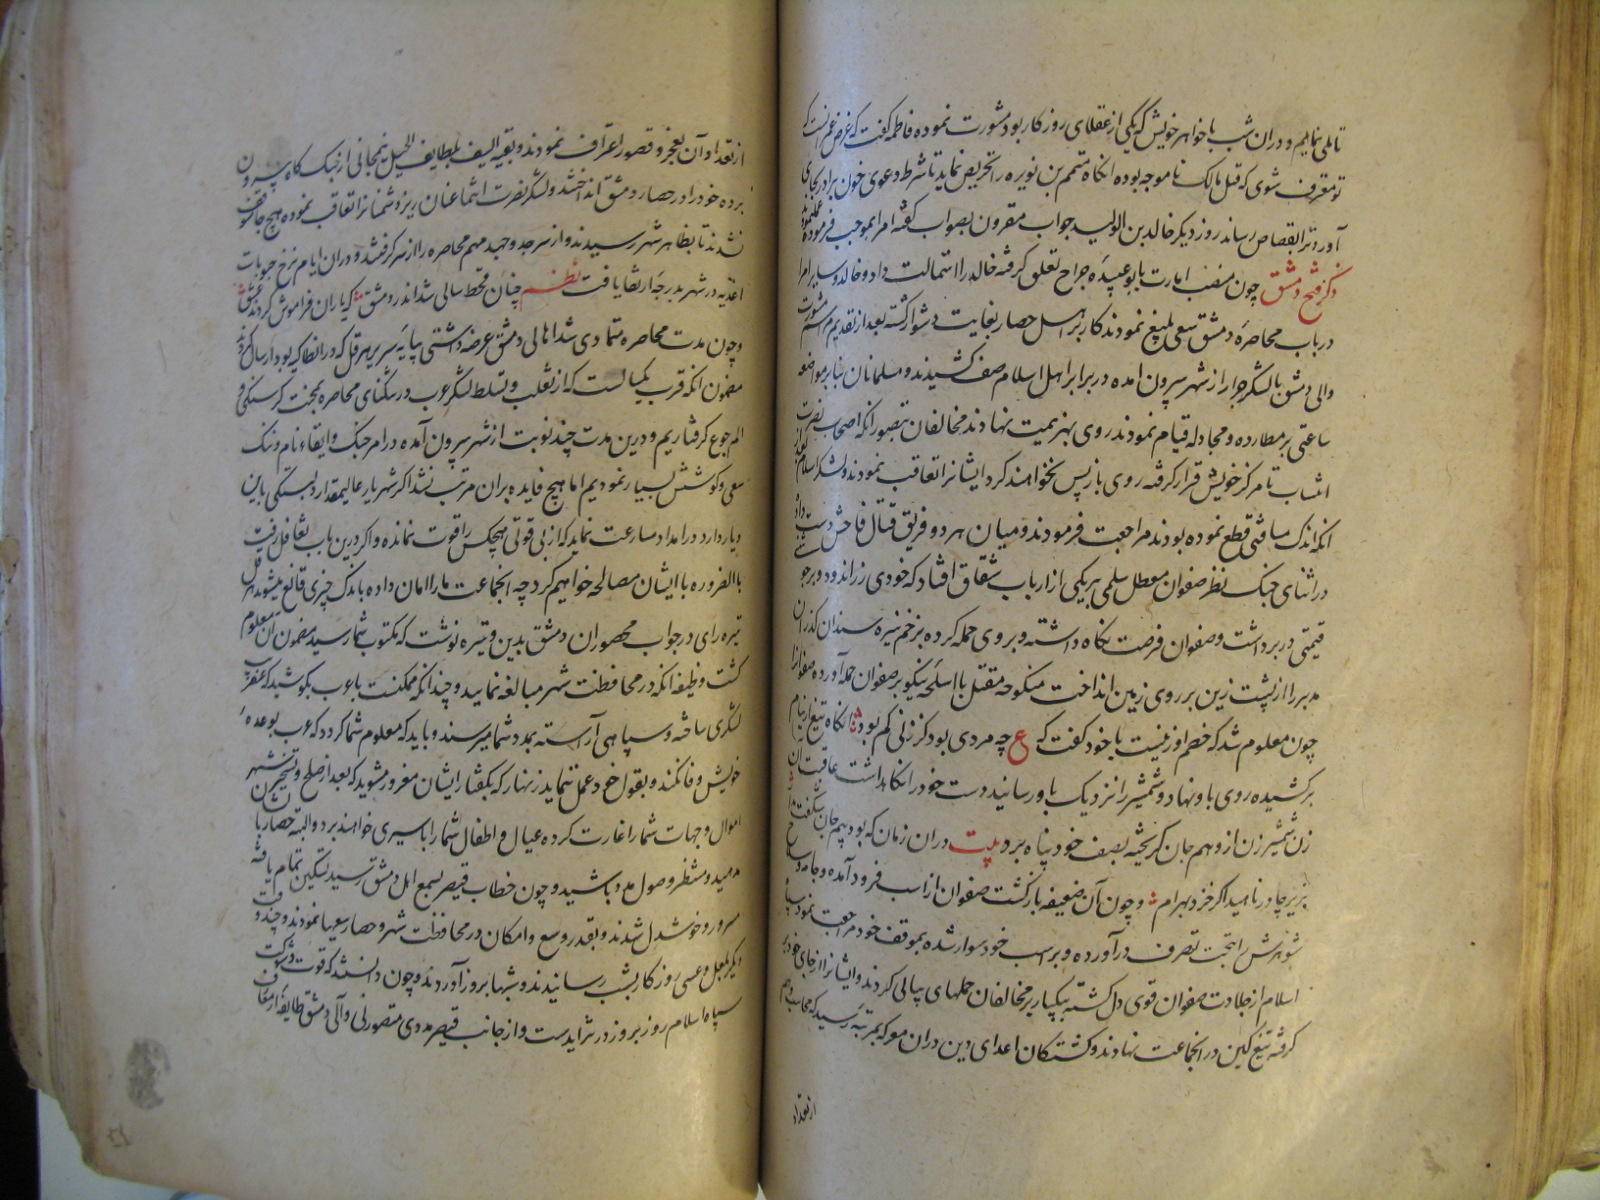 تاملی نمایم و دران شب با خواهر خویش که یکی از عقلای روزکار بود مشورت نموده فاطمه کفت که غرض عمر انست که
تو معترف شوی که قتل مالک ناموجه بوده انکاه متمم بن نویره را تحریض نماید تا شرط دعوی خون برادر بجای
آورد ترا بقصاص رساند روز دیکر خالد بن الولید جواب مقرون بصواب کفته امرا بموجب فرموده عمل نمودند
ذکر فتح دمشق چون منصب امارت بابو عبیده جراح تعلق کرفته خالد را استمالت داد و خالد و سایر امرا
در باب محاصره دمشق سعی بلیغ نمودند کار بر اهل حصار بغایت دشوار کشته بعد از تقدیم مراسم مشورت
والی دمشق با لشکر جرار از شهر بیرون امده در برابر اهل اسلام صف کشیدند و مسلمانان بنا بر مواضعه
ساعتی بر مطارده و مجادله قیام نمودند روی بهزیمت نهادند مخالفان بتصور انکه اصحاب نصرت
انتساب تا مرکز خویش قرار کرفته روی باز پس نخواهند کرد ایشانرا تعاقب نمودند و لشکر اسلام بعد از
انکه اندک مسافتی قطع نموده بودند مراجعت فرمودند و میان هر دو فریق قتال فاحش دست داد
در اثنای جنک نظر صفوان معطل سلمی بر یکی از ارباب شقاق افتاد که خودی زراندود بر
قیمتی در بر داشت و صفوان فرصت نکاه داشته و بر وی حمله کرده بزخم نیزه سندان کذران
مدبر را از پشت زین بر روی زمین انداخت منکوحه مقتل با اسلحه نیکو بر صفوان حمله آورده صفوانرا
چون معلوم شد که خصم او زنیست با خود کفت که ع چه مردی بود کز زنی کم بود انکاه تیغ از نیام
برکشیده روی باو نهاد و شمشیر را نزدیک باو رسانید دست خود را نکاه داشت عاقبت ان
زن شمشیر زن از وهم جان کریخته بصف خود پناه برد بیت دران زمان که بود بیم جان
بزیر چادر ناهید اکر خزد بهرام و چون آن ضعیفه بازکشت صفوان از اسب فرود آمده و جامه و
شوهرش را بتحت تصرف درآورده و بر اسب خود سوار شده بموقف خود مراجعت نمود سپاه
اسلام از جلادت صفوان قوی دل کشته بیکبار بر مخالفان حملهای پیاپی کردند و ایشانرا از جای خود بر
کرفته تیغ کین در انجماعت نهادند و کشتکان اعدای دین دران معرکه بمرتبه رسید که محاسب وهم
از تعداد
از تعداد آن بعجز و قصور اعتراف نمودند و بقیة السیف بلطایف الحیل نیمجانی از جنک کاه بیرون
برده خود را در حصار دمشق انداختند و لشکر نصرت انتما عنان ریز دشمنانرا تعاقب نموده هیچ جا متوقف
نشدند تا بظاهر شهر رسیدند و از سر جد و جهد مهم محاصره را از سر کرفتند و دران ایام نرخ حبوبات
اغذیه در شهر بدرجه ارتقا یافت نظم چنان قحط سالی شد اندر دمشق که یاران فراموش کردند عشق
و چون مدت محاصره متمادی شد اهالی دمشق عرضه داشتی بپایه سریر هرقل که در انطاکیه بود ارسال کردند
مضمون انکه قرب یکسالست که از تغلب و تسلط لشکر عرب در تنکنای محاصره بمحنت کرسنکی و
الم جوع کرفتاریم و درین مدت چند نوبت از شهر بیرون آمده در امر جنک و ابقاء نام و ننک
سعی و کوشش بسیار نمودیم اما هیچ فایده بران مترتب نشد اکر شهریار عالیمقدار دلبستکی باین
دیار دارد در امداد مسارعت نماید که از بی قوتی هیچکس را قوت نمانده و اکر درین باب تغافل رفت
باالضروره با ایشان مصالحه خواهیم کرد چه انجماعت ما را امان داده باندک چیزی قانع میشوند هرقل
تیره رای در جواب محصوران دمشق بدین وتیره نوشت که مکتوب شما رسید مضمون آن معلوم
کشت وظیفه انکه در محافظت شهر مبالغه نمایید و چندانکه ممکنست با عرب بکوشید که عنقریب
لشکری ساخته و سپاهی آراسته بمدد شما میرسند و باید که معلوم شما کردد که عرب بوعده
خویش وفا نکند و بقول خود عمل ننماید زنهار که بکفتار ایشان مغرور مشوید که بعد از صلح و تسخیر شهر
اموال و جهات شما را غارت کرده عیال و اطفال شما را باسیری خواهند برد و البته حصار با
مدهید و منتظر وصول مدد باشید و چون خطاب قیصر بسمع اهل دمشق رسید تسکین تمام یافته
مسرور و خوشدل شدند و بقدر وسع و امکان در محافظت شهر و حصار سعیها نمودند و چند وقت
دیکر بلعل و عسی روزکار بشب رسانیدند و شبها بروز آوردند و چون دانستند که قوت و شوکت
سپاه اسلام روز بروز در تزایدست و از جانب قیصر مددی متصور نی والی دمشق طایفه از